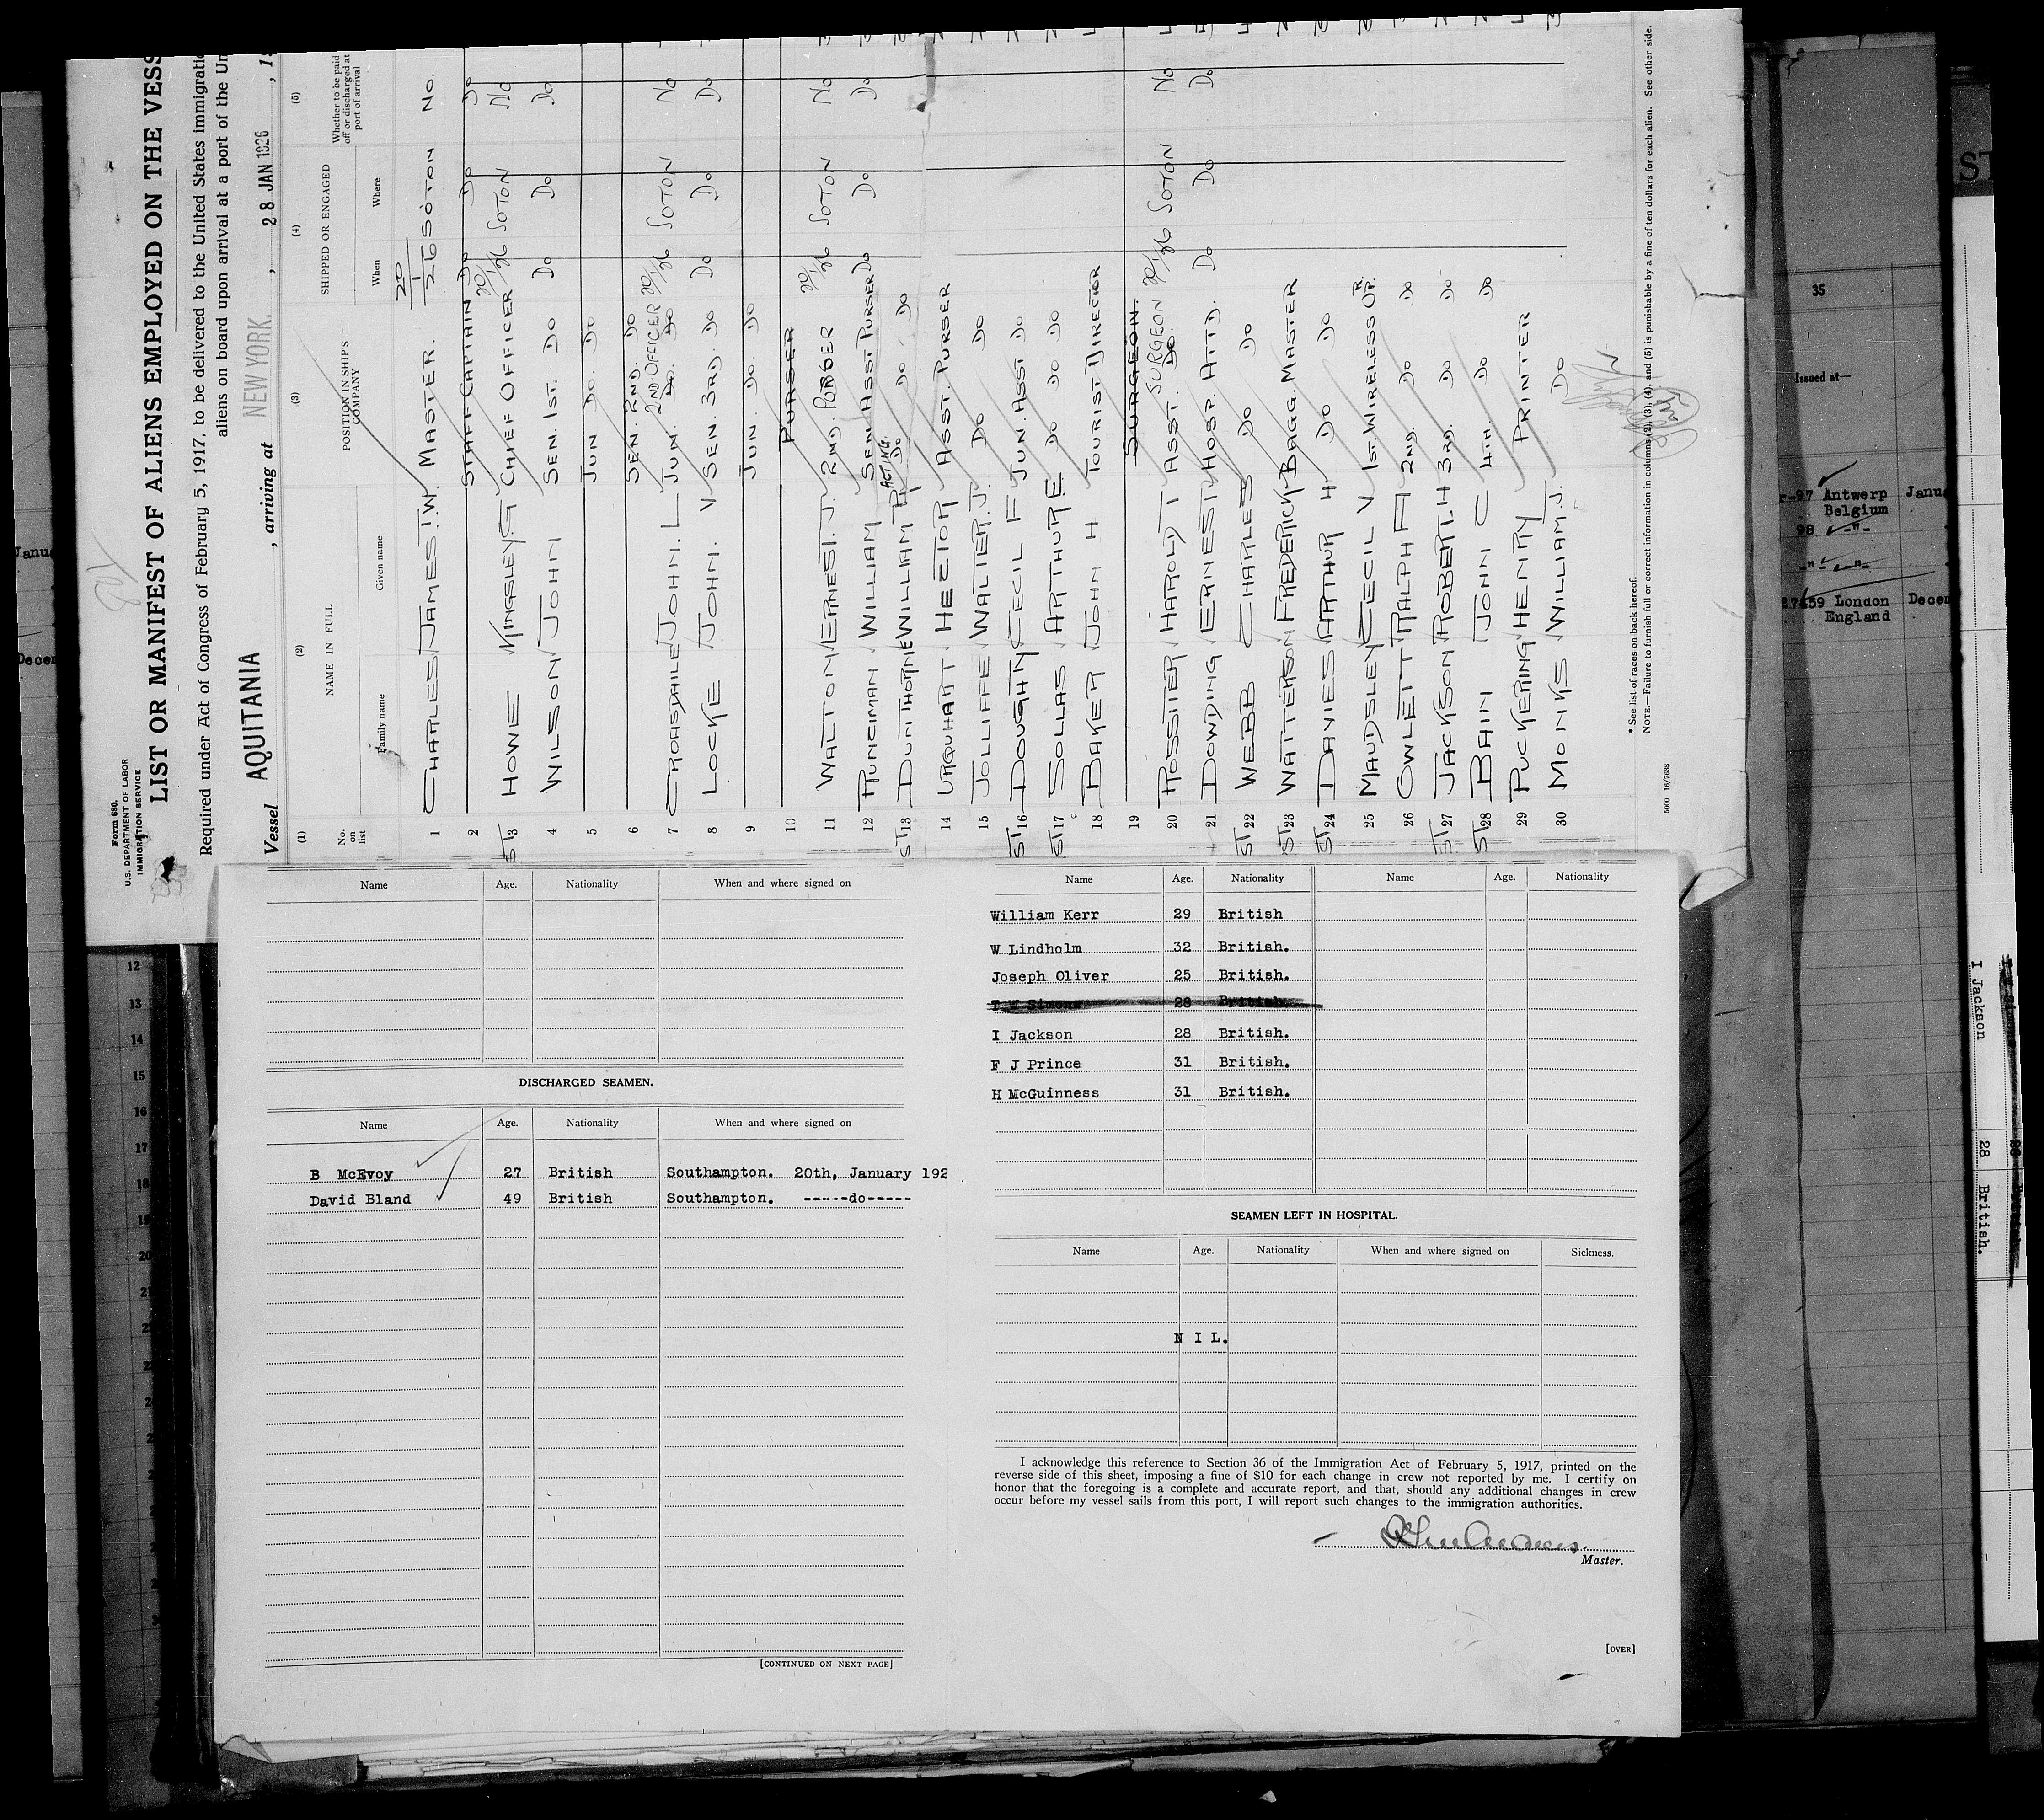 Form 680.
U.S. DEPARTMENT OF LABOR
IMMIGRATION SERVICE
LIST OR MANIFEST OF ALIENS EMPLOYED ON THE VESS
Required under Act of Congress of February 5, 1917, to be delivered to the United States immigratio
aliens on board upon arrival at a port of the Un
Vessel AQUITANIA , arriving at NEW YORK. , 28 JAN 1926 , 19
(1) (2) (3) (4) (5)
No. on list NAME IN FULL POSITION IN SHIP'S COMPANY SHIPPED OR ENGAGED Whether to be paid off or discharged at port of arrival
Family name Given name When Where
1 CHARLES JAMES T.W. MASTER. 20/1/26 SOTON No.
2 STAFF CAPTAIN Do Do Do
ST 3 HOWIE KINGSLEY.G CHIEF OFFICER 20/1/26 SOTON No
4 WILSON JOHN SEN. 1ST. Do Do Do Do
5 JUN Do. Do
6 SEN. 2ND. Do
7 CROASDAILE JOHN. L JUN. 2ND OFFICER 20/1/26 SOTON No
8 LOCKE JOHN. V SEN. 3RD. Do Do Do Do
9 JUN. Do. Do
10 PURSER
11 WALTON ERNEST. J. 2ND PURSER 20/1/26 SOTON No
12 RUNCIMAN WILLIAM SEN ASST PURSER Do Do Do
ST 13 DUNTHORNE WILLIAM H ACTING. Do Do. Do
14 URQUHART HECTOR ASST. PURSER
15 JOLLIFFE WALTER. J. Do Do
ST 16 DOUGHTY CECIL F JUN. ASST Do
ST 17 SOLLAS ARTHUR E Do Do Do
18 BAKER JOHN H TOURIST DIRECTOR
19 SURGEON.
20 ROSSITER HAROLD T ASST. SURGEON 20/1/26 SOTON No
21 DOWDING ERNEST HOSP. ATTD. Do Do Do
ST 22 WEBB CHARLES Do Do
ST 23 WATTERSON FREDERICK BAGG. MASTER
ST 24 DAVIES ARTHUR H Do Do
25 MAUDSLEY CECIL V 1ST. WIRELESS OPR.
26 OWLETT RALPH A 2ND. Do Do
ST 27 JACKSON ROBERT. H 3RD. Do Do
ST 28 BAIN JOHN C 4TH. Do Do
29 PUCKERING HENRY PRINTER
30 MONKS WILLIAM. J. Do
* See list of races on back hereof.
NOTE.—Failure to furnish full or correct information in columns (2), (3), (4), and (5) is punishable by a fine of ten dollars for each alien. See other side.
5000 16/7638
Name Age. Nationality When and where signed on
DISCHARGED SEAMEN.
Name Age. Nationality When and where signed on
B McEvoy 27 British Southampton. 20th, January 192
David Bland 49 British Southampton. -----do-----
[CONTINUED ON NEXT PAGE]
Name Age. Nationality Name Age. Nationality
William Kerr 29 British
W Lindholm 32 British.
Joseph Oliver 25 British.
T W Simons 28 British.
I Jackson 28 British.
F J Prince 31 British.
H McGuinness 31 British.
SEAMEN LEFT IN HOSPITAL.
Name Age. Nationality When and where signed on Sickness.
N I L.
I acknowledge this reference to Section 36 of the Immigration Act of February 5, 1917, printed on the
reverse side of this sheet, imposing a fine of $10 for each change in crew not reported by me. I certify on
honor that the foregoing is a complete and accurate report, and that, should any additional changes in crew
occur before my vessel sails from this port, I will report such changes to the immigration authorities.
Master.
[OVER]
Janu
Decem
12
13
14
15
16
17
18
19
20
21
35
Issued at—
r-97 Antwerp Janu
Belgium
98 -"-
-"- -"-
27459 London Decem
England
ST
I Jackson 28 British.